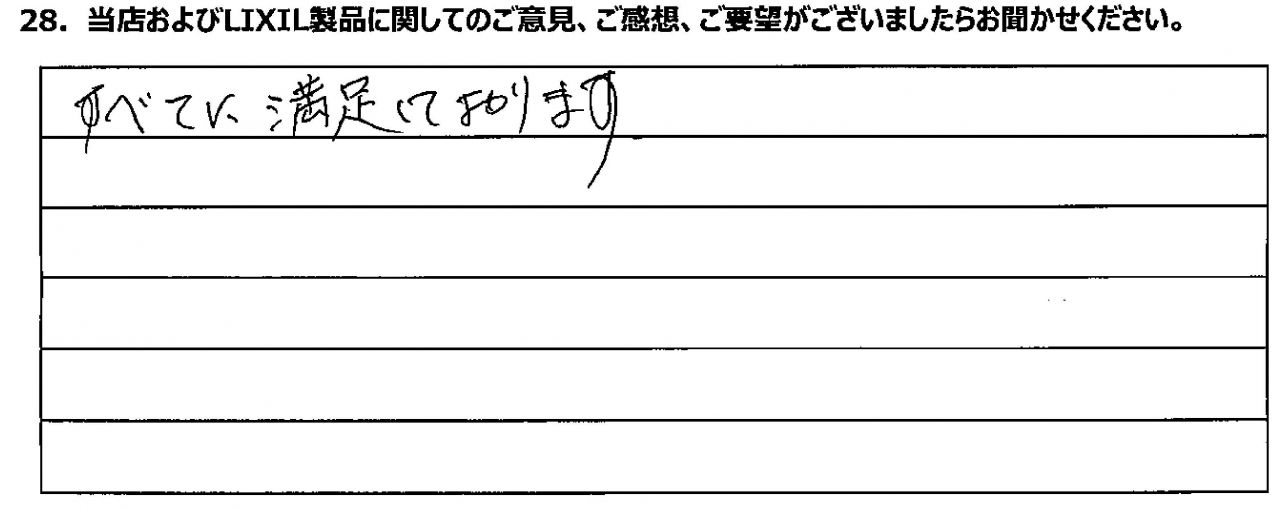 28. 当店およびLIXIL製品に関してのご意見、ご感想、ご要望がございましたらお聞かせください。
すべてに満足しております